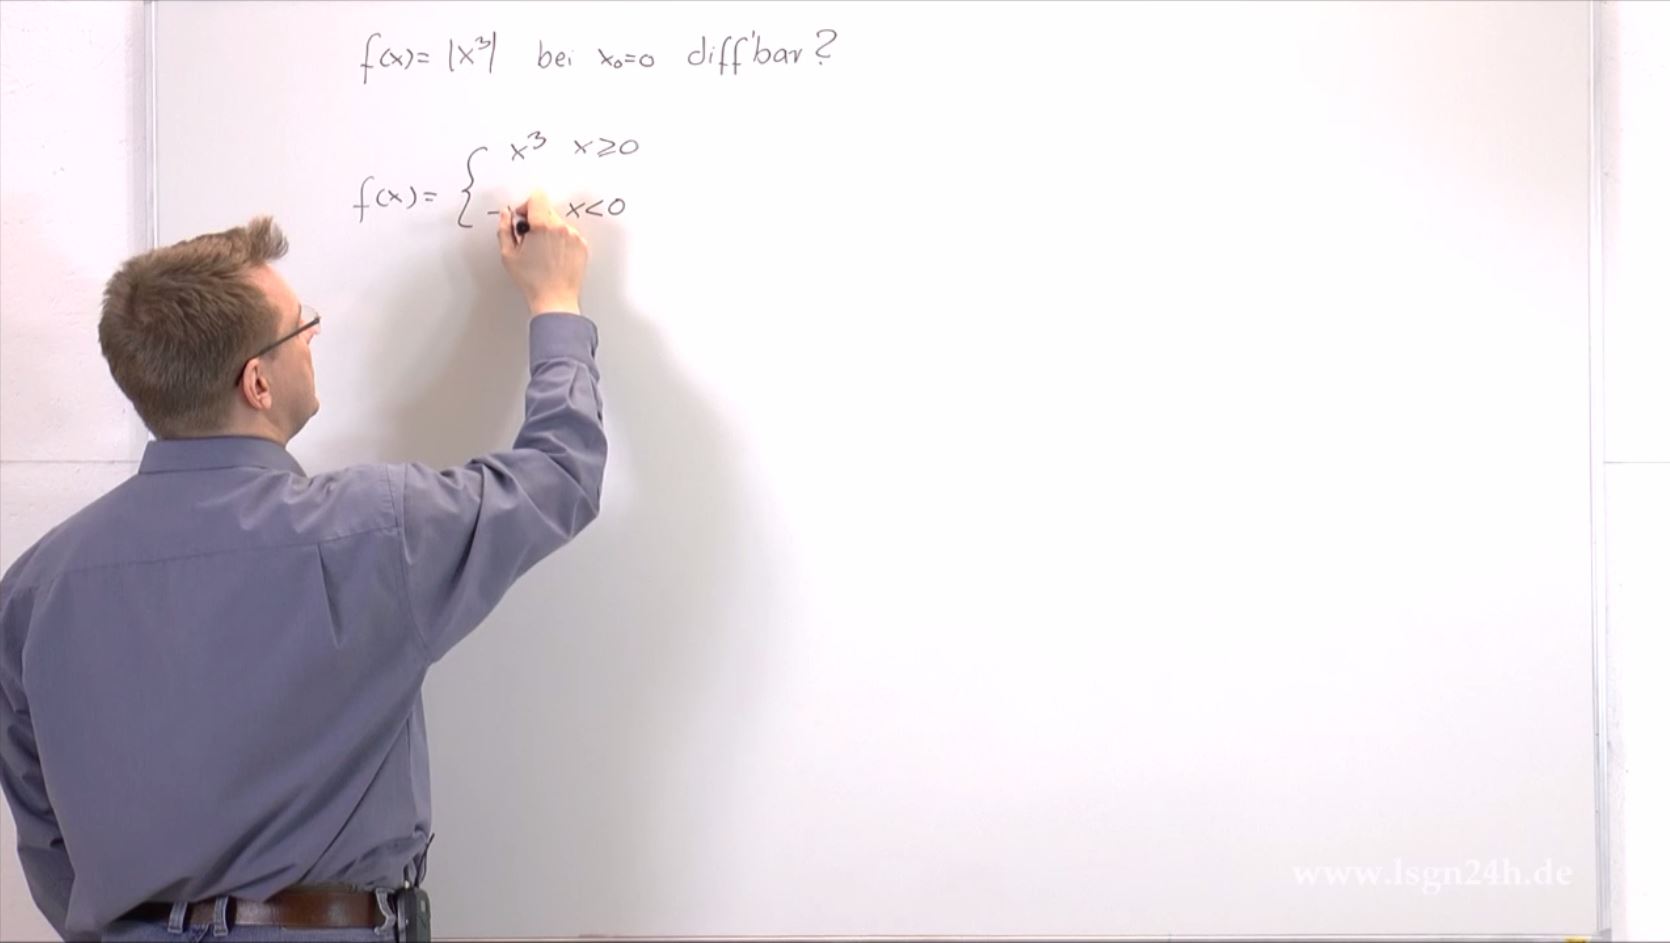 f(x)= |x³| bei x₀=0 diff'bar?
x³ x≥0
f(x)= {
- x<0
www.lsgn24h.de